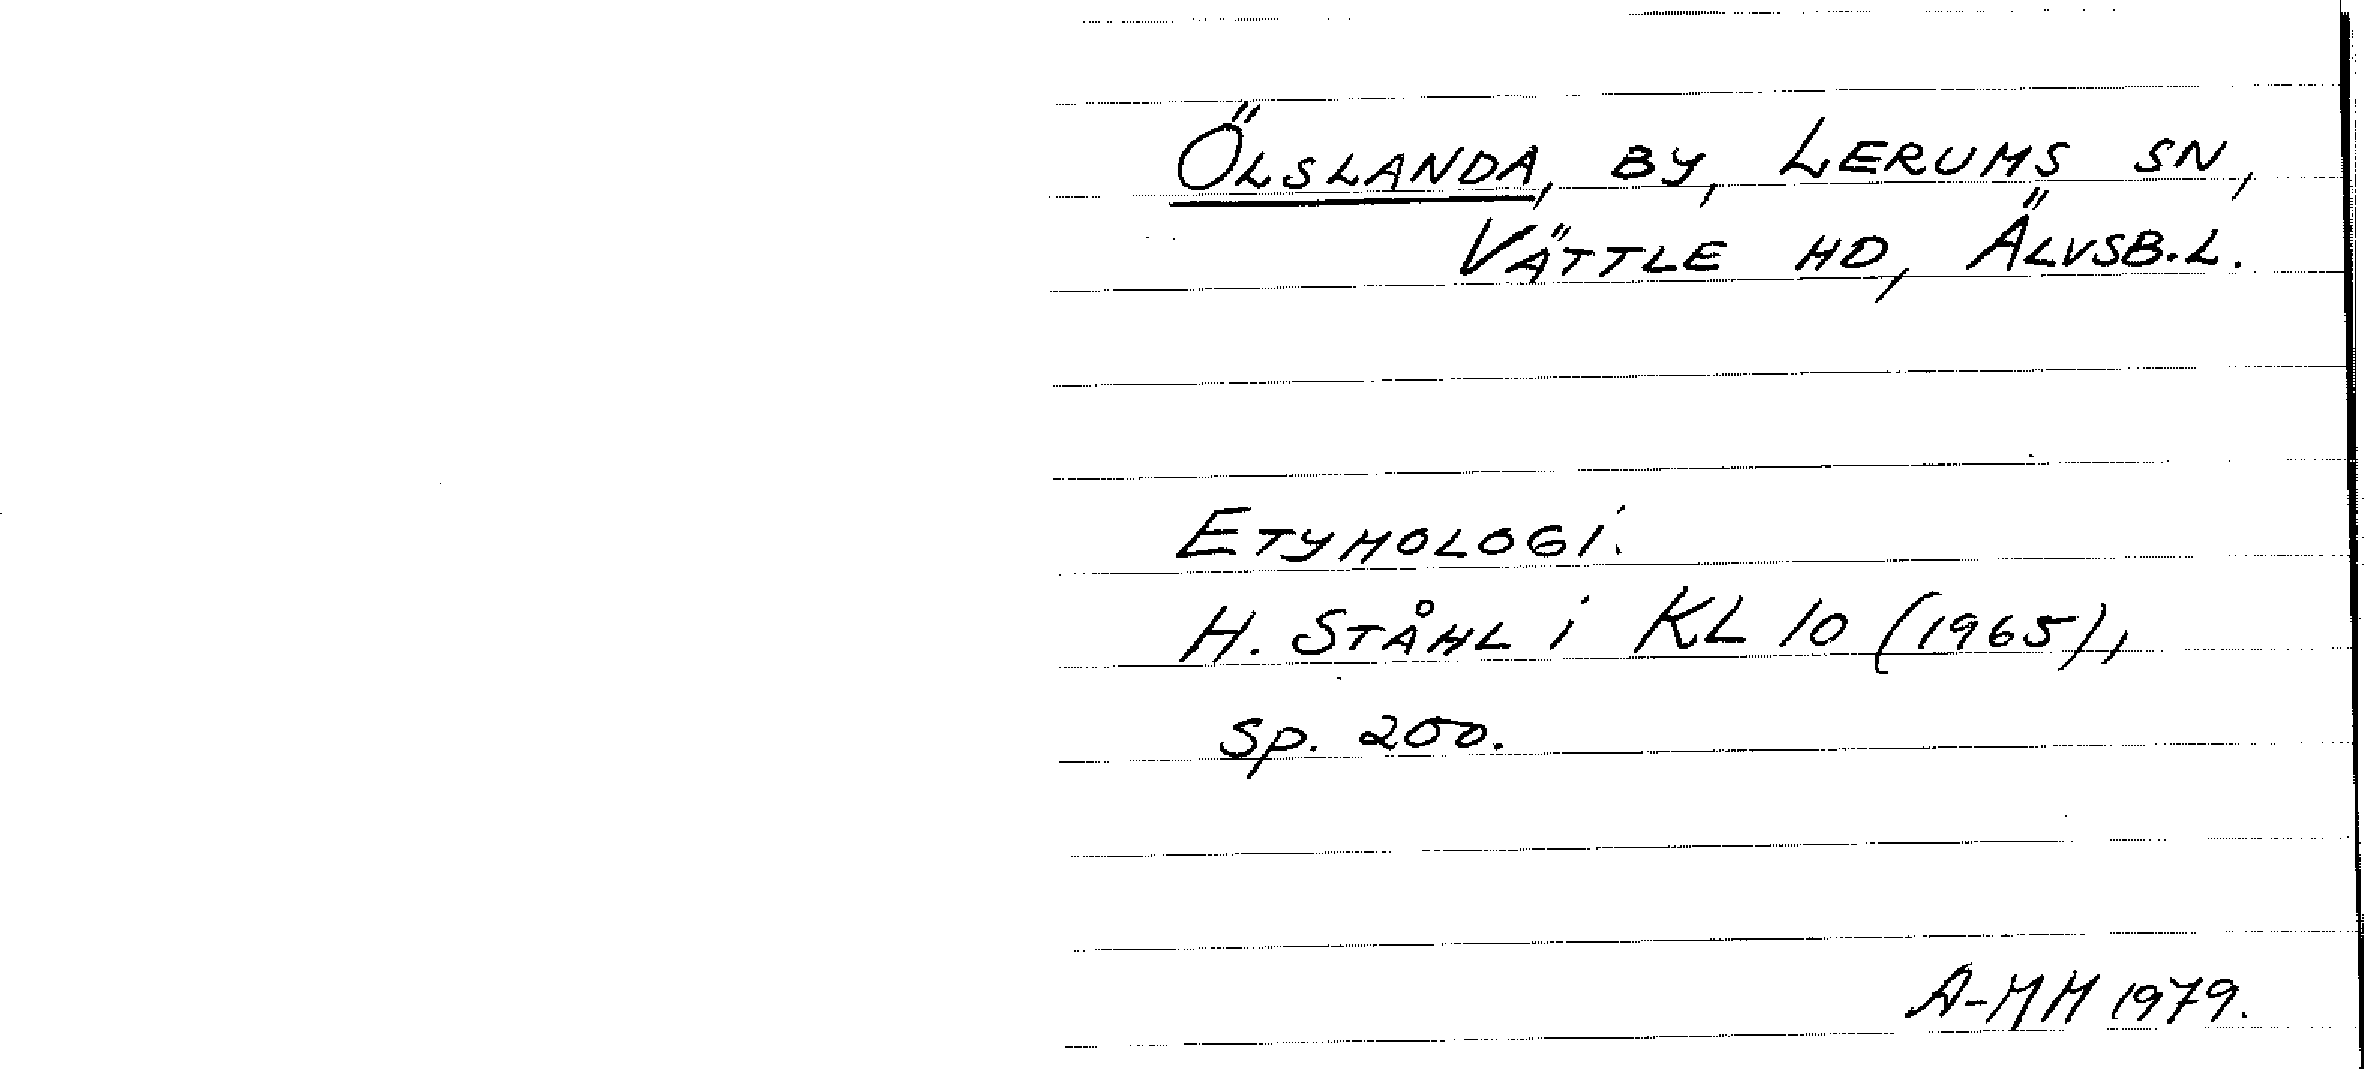 ÖLSLANDA, BY, LERUMS SN,
VÄTTLE HD, ÄLVSB.L.
ETYMOLOGI.
H. STÅHL i KL 10 (1965),
Sp. 200.
A-MH 1979.